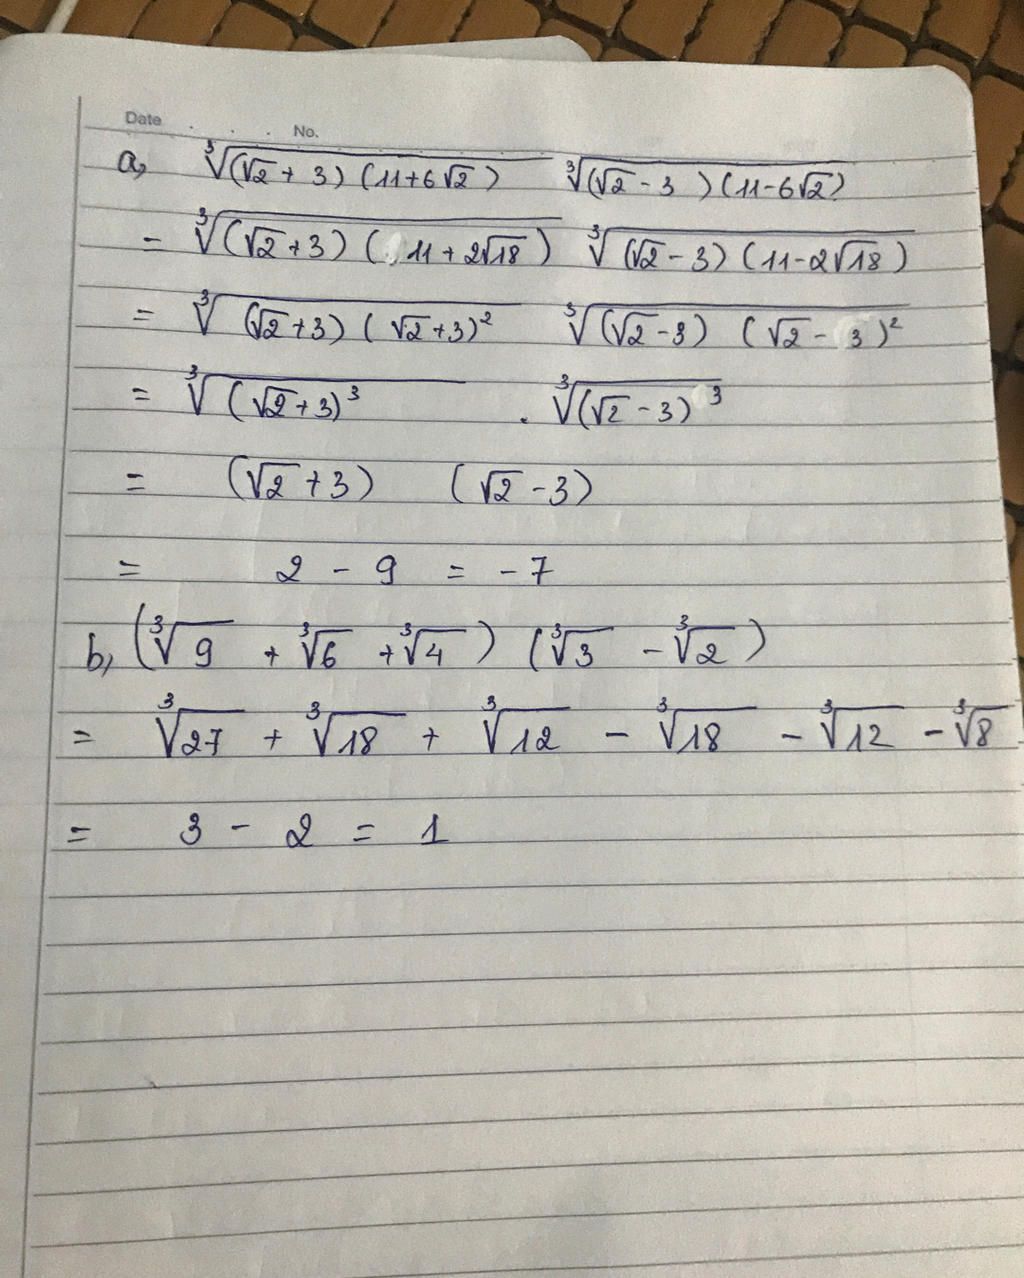 Date . . . No.
a, ∛((√2 + 3)(11+6√2)) ∛((√2 - 3)(11-6√2))
= ∛((√2+3)(11+2√18)) ∛((√2-3)(11-2√18))
= ∛((√2+3)(√2+3)²) ∛((√2-3)(√2-3)²)
= ∛((√2+3)³) . ∛((√2-3)³)
= (√2+3) (√2-3)
= 2 - 9 = -7
b, (∛9 + ∛6 + ∛4) (∛3 - ∛2)
= ∛27 + ∛18 + ∛12 - ∛18 - ∛12 - ∛8
= 3 - 2 = 1